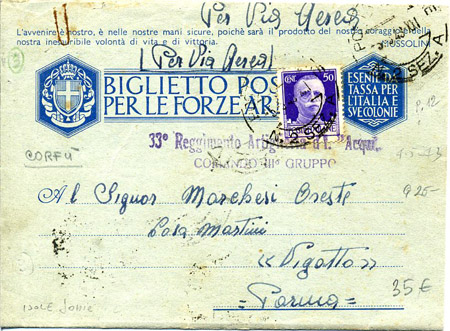 Per Via Aerea
L'avvenire è nostro, è nelle nostre mani sicure, poichè sarà il prodotto del nostro coraggio e della
nostra inesauribile volontà di vita e di vittoria.
MUSSOLINI
(Per Via Aerea)
BIGLIETTO POS
PER LE FORZE AR
CENT. 50
ESENTE
TASSA PER
L'ITALIA E
SVE COLONIE
SEZ. A
P. 12
CORFÙ
33° Reggimento Artiglieria d.f. "Acqui"
COMANDO III° GRUPPO
9-5-43
Al Signor Marchesi Oreste
925-
Casa Martini
«Vigatto»
=Parma=
35€
ISOLE Jonie